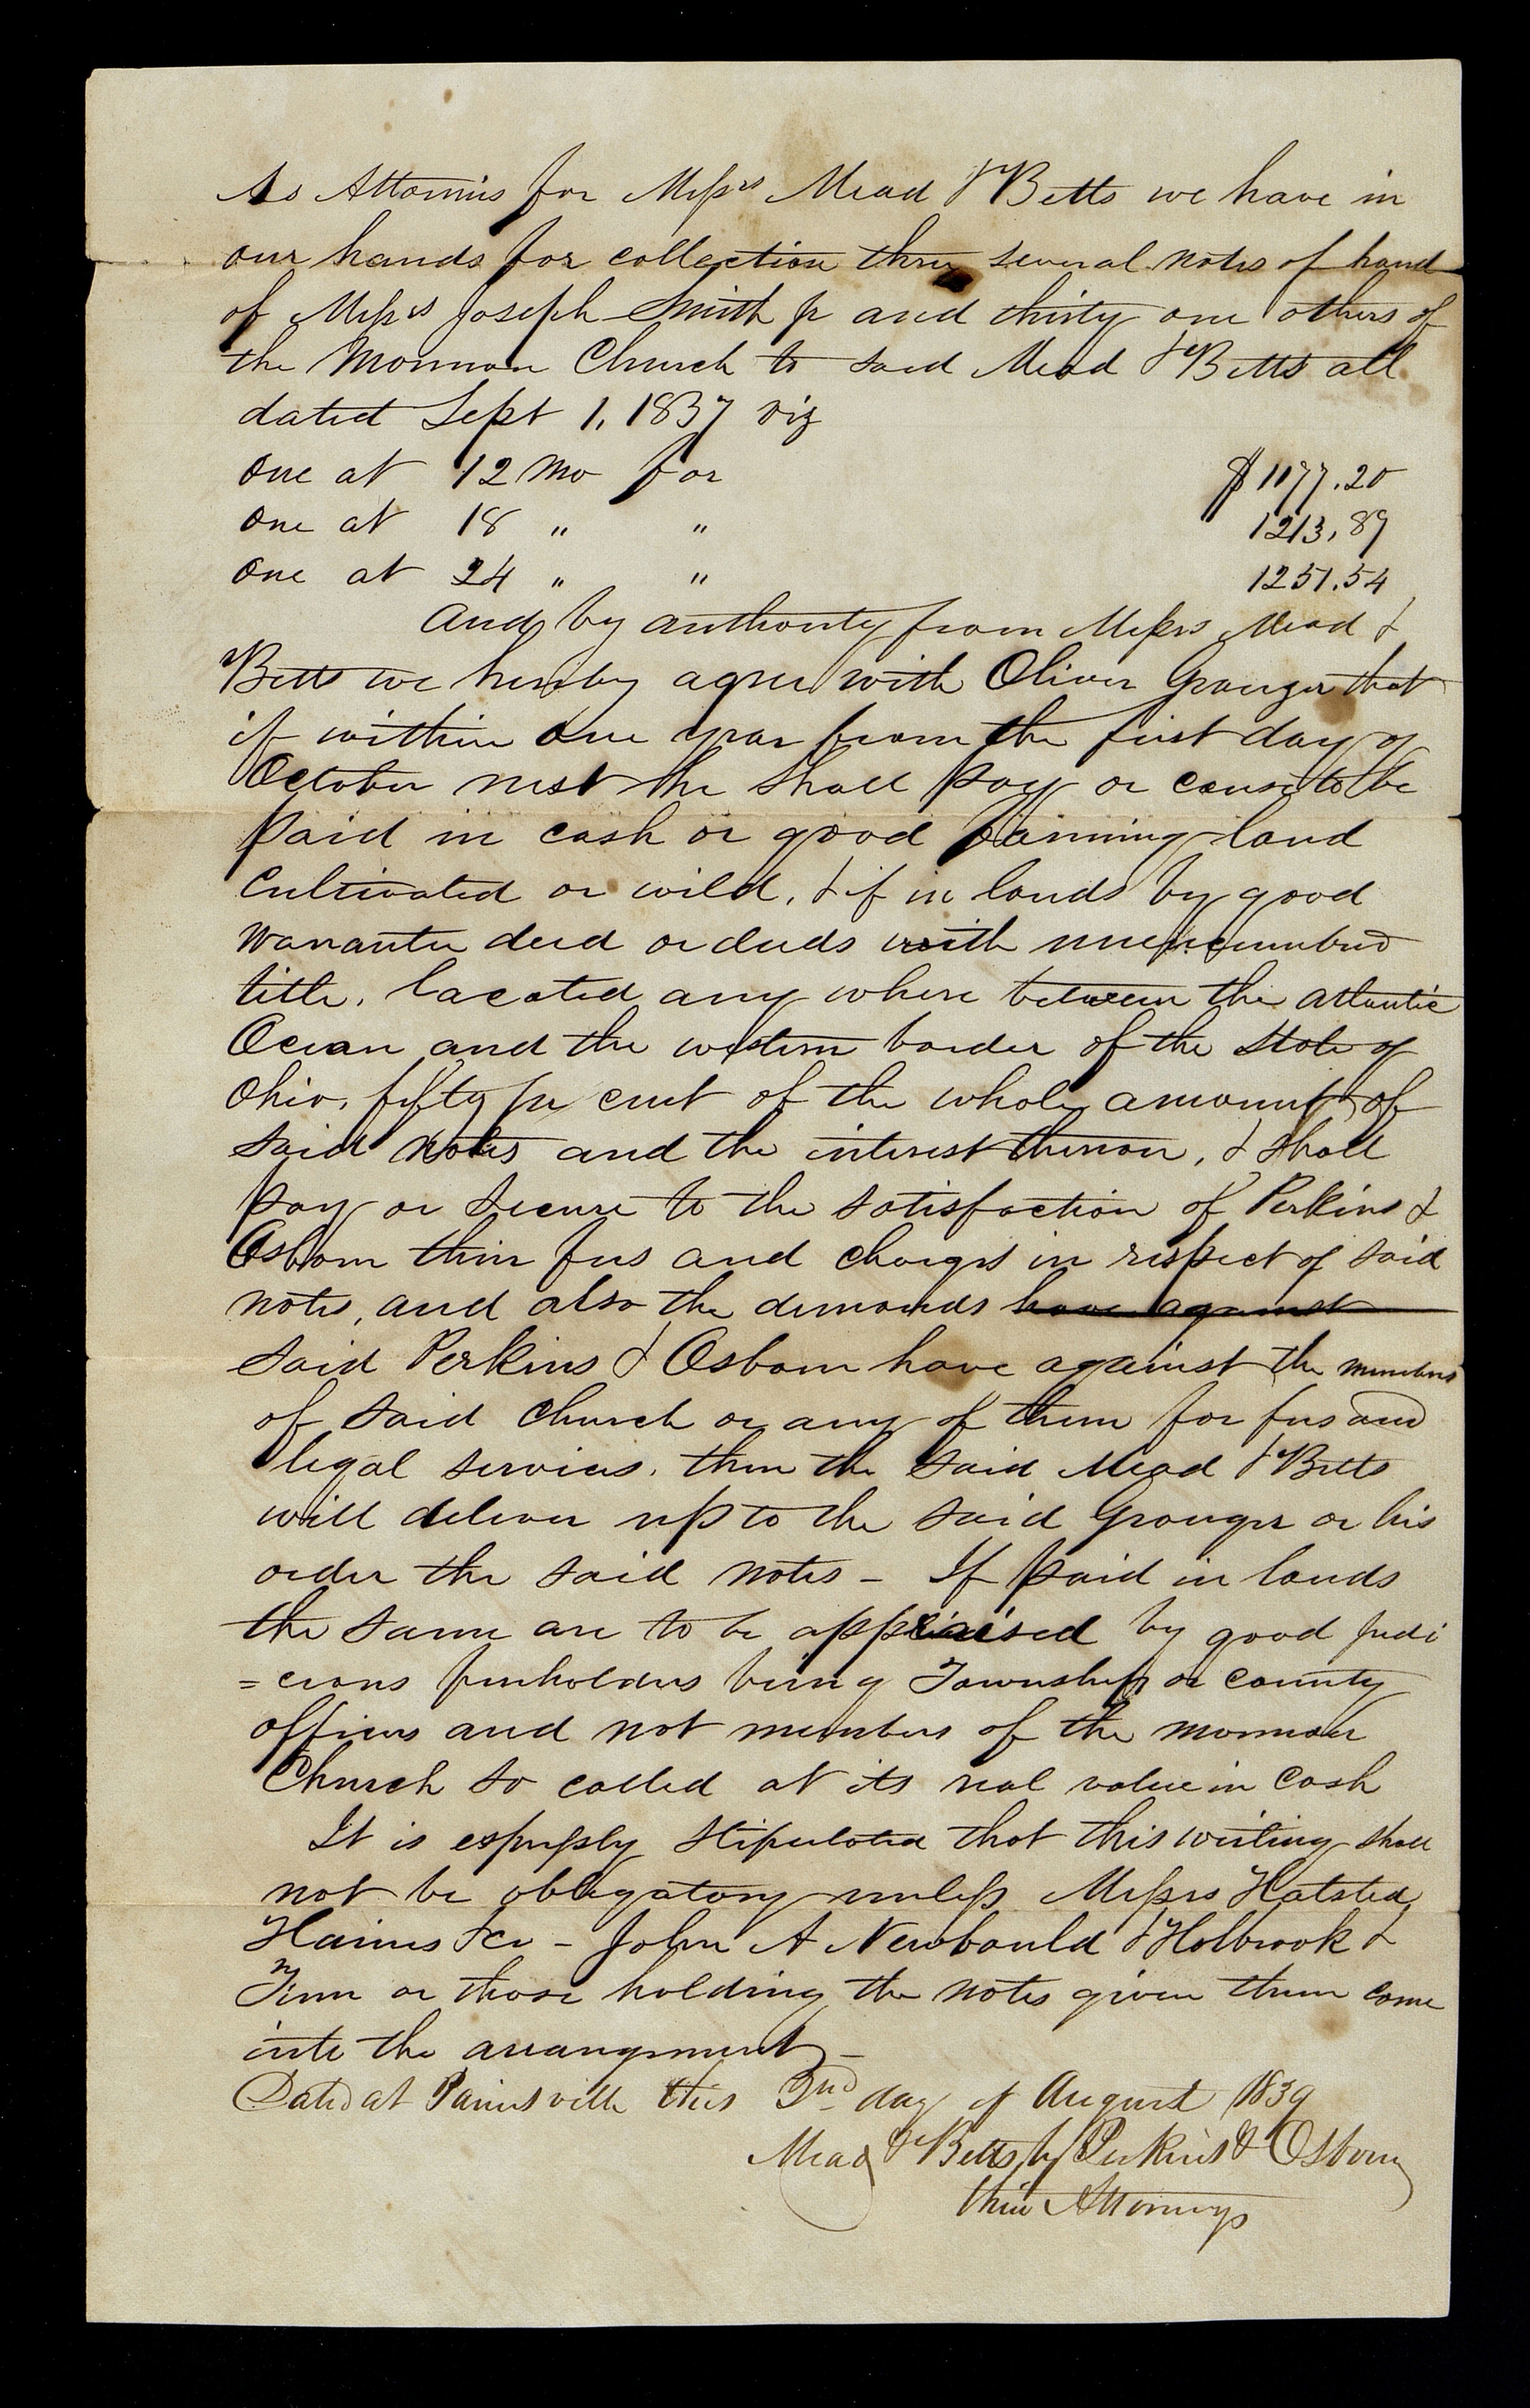 As Attornies for Messrs Mead & Betts we have in
our hands for collection three several notes of hand
of Messrs Joseph Smith jr and thirty one others of
the Mormon Church to said Mead & Betts all
dated Sept 1, 1837 viz
One at 12 mo for $1177.20
One at 18 " " 1213,89
One at 24 " " 1251.54
And by authority from Messrs Mead &
Betts we hereby agree with Oliver Granger that
if within one year from the first day of
October next he shall pay or cause to be
paid in cash or good farming land
cultivated or wild, & if in lands by good
warrantee deed or deeds with unencumbered
title, located any where between the atlantic
Ocean and the western border of the State of
Ohio, fifty per cent of the whole amount of
said notes and the interest thereon, & shall
pay or secure to the satisfaction of Perkins &
Osborn their fees and charges in respect of said
notes, and also the demands have against
said Perkins & Osborn have against the members
of said Church or any of them for fees and
legal services, then the said Mead & Betts
will deliver up to the said Granger or his
order the said notes - If paid in lands
the same are to be appraised by good judi
=cious freeholders being Township or County
officers and not members of the mormon
Church so called at its real value in Cash
It is expressly stipulated that this writing shall
not be obligatory unless Messrs Halsted
Haines &co - John A Newbould & Holbrook &
Firm or those holding the notes given them come
into the arrangement -
Dated at Painesville this 3nd day of August 1839
Mead & Betts by Perkins & Osborn
their Attorneys